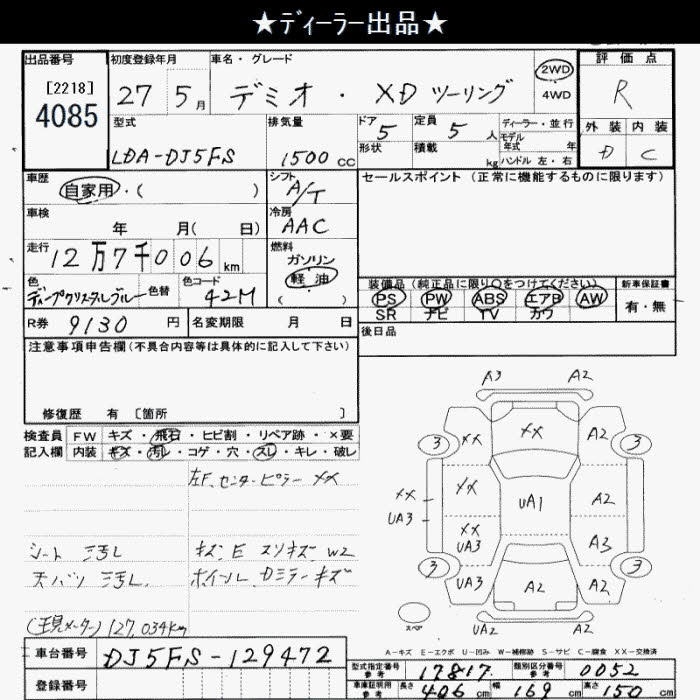 ★ディーラー出品★
出品番号
[2218]
4085
初度登録年月
27 5月
車名・グレード
デミオ・XDツーリング
2WD
4WD
評価点
R
外装 内装
D C
型式
LDA-DJ5FS
排気量
1500cc
ドア
5
定員
5人
形状
積載 kg
ディーラー・並行
モデル年式 年
ハンドル 左・右
車歴
自家用・( )
シフト
A/T
セールスポイント (正常に機能するものに限ります)
車検
年 月( 日)
冷房
AAC
走行
12万7千006km
燃料
ガソリン
軽油
( )
色
ディープクリスタルブルー
色替
色コード
42M
装備品 (純正品に限り○をつけてください)
PS PW ABS エアB AW
SR ナビ TV カワ
新車保証書
有・無
R券 9130円
名変期限 月 日
後日品
注意事項申告欄(不具合内容等は具体的に記入して下さい)
修復歴 有 [箇所 ]
検査員記入欄
FW キズ・飛石・ヒビ割・リペア跡・×要
内装 キズ・汚レ・コゲ・穴・スレ・キレ・破レ
左F.センターピラー XX
シート 汚レ
天バリ 汚レ.
キズ.E スリキズ W2
ホイール.Dミラーキズ
(現メーター)127,034km
A3 A2
3 XX XX A2 3
XX XX UA1 A2
UA3 XX UA3 A3
3 UA3 A2 A2 3
スペア
UA2 A2
A-キズ E-エクボ U-凹み W-補修跡 S-サビ C-腐食 XX-交換済
車台番号 DJ5FS-129472
登録番号
型式指定番号参考 17817
類別区分番号参考 0052
車庫証明用参考 長さ 406cm 幅 169cm 高さ 150cm